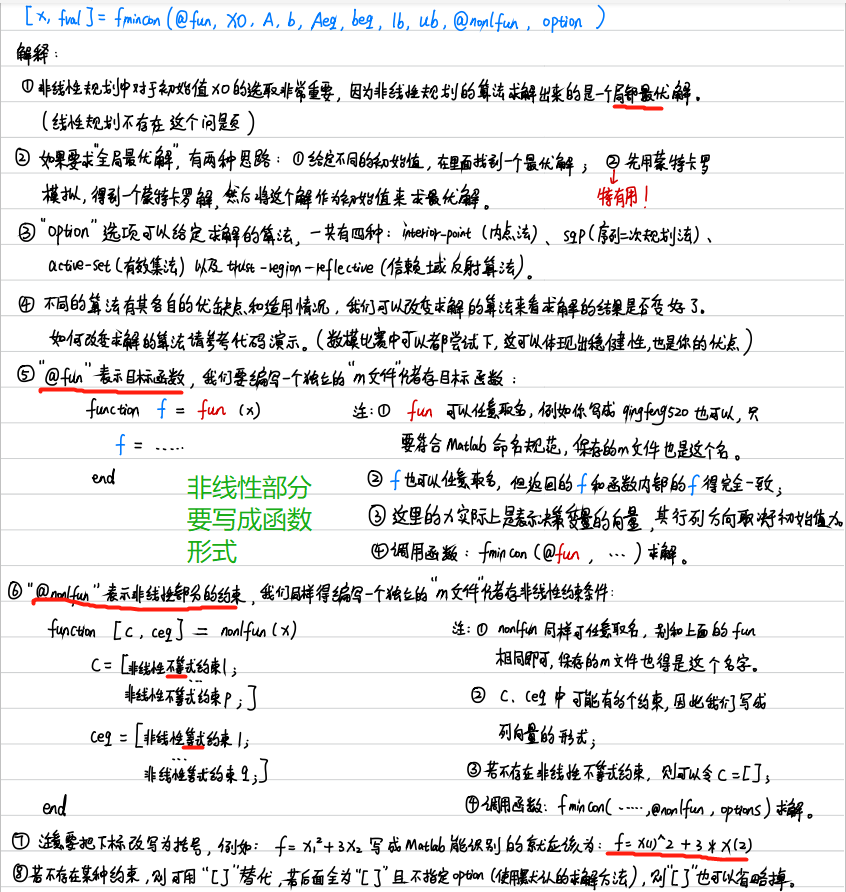 [x, fval] = fmincon(@fun, X0, A, b, Aeq, beq, lb, ub, @nonlfun, option)
解释：
①非线性规划中对于初始值X0的选取非常重要，因为非线性规划的算法求解出来的是一个局部最优解。
（线性规划不存在这个问题）
② 如果要求"全局最优解"，有两种思路：①给定不同的初始值，在里面找到一个最优解； ② 先用蒙特卡罗
模拟，得到一个蒙特卡罗解，然后将这个解作为初始值来求最优解。
特有用！
③"option"选项可以给定求解的算法，一共有四种：interior-point（内点法）、sqp（序列二次规划法）、
active-set（有效集法）以及trust-region-reflective（信赖域反射算法）。
④ 不同的算法有其各自的优缺点和适用情况，我们可以改变求解的算法来看求解的结果是否变好了。
如何改变求解的算法请参考代码演示。（数模比赛中可以都尝试下，这可以体现出稳健性，也是你的优点）
⑤"@fun"表示目标函数，我们要编写一个独立的"m文件"储存目标函数：
function f = fun (x)
f = ……
end
非线性部分
要写成函数
形式
注：① fun 可以任意取名，例如你写成qingfeng520也可以，只
要符合Matlab命名规范，保存的m文件也是这个名。
② f也可以任意取名，但返回的f和函数内部的f得完全一致；
③ 这里的x实际上是表示决策变量的向量，其行列方向取决于初始值x0
④调用函数：fmincon(@fun, …)求解。
⑥"@nonlfun"表示非线性部分的约束，我们同样得编写一个独立的"m文件"储存非线性约束条件：
function [c, ceq] = nonlfun(x)
C = [非线性不等式约束1;
…
非线性不等式约束p;]
ceq = [非线性等式约束1;
…
非线性等式约束q;]
end
注：① nonlfun同样可任意取名，别和上面的fun
相同即可，保存的m文件也得是这个名字。
② c、ceq中可能有多个约束，因此我们写成
列向量的形式；
③若不存在非线性不等式约束，则可以令C=[];
④调用函数：fmincon(……,@nonlfun, options)求解。
⑦ 注意要把下标改写为括号，例如：f=x₁²+3x₂ 写成Matlab能识别的就应该为：f=x(1)^2+3*x(2)
⑧若不存在某种约束，则可用"[]"替代，若后面全为"[]"且不指定option（使用默认的求解方法），则"[]"也可以省略掉。